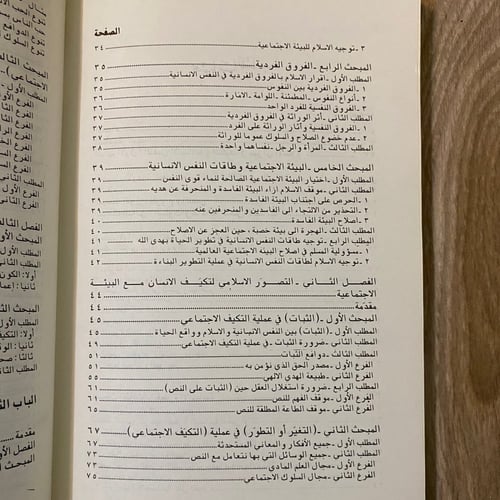 الصفحة
٣ - توجيه الاسلام للبيئة الاجتماعية ٣٤
المبحث الرابع - الفروق الفردية ٣٥
المطلب الأول - اقرار الاسلام بالفروق الفردية في النفس الانسانية ٣٥
١ - الفروق الفردية بين النفوس ٣٥
٢ - أنواع النفوس - المطمئنة - اللوامة - الامارة ٣٦
٣ - الفروق النفسية للفرد الواحد ٣٦
المطلب الثاني - أثر الوراثة في الفروق الفردية ٣٧
١ - الفروق النفسية وآثار الوراثة على الفرد ٣٧
٢ - عدم خضوع الصلاح والسلوك عموما للوراثة ٣٨
المطلب الثالث - المرأة والرجل - نفساهما واحدة ٣٨
المبحث الخامس - البيئة الاجتماعية وطاقات النفس الانسانية ٣٩
المطلب الأول - اختيار البيئة الاجتماعية الصالحة لنماء قوى النفس ٣٩
المطلب الثاني - موقف الاسلام ازاء البيئة الفاسدة والمنحرفة عن هديه ٣٩
١ - الحرص على اجتناب البيئة الفاسدة ٣٩
٢ - التحذير من الالتجاء الى الفاسدين والمنحرفين عنه ٤٠
٣ - اصلاح البيئة الفاسدة ٤٠
المطلب الثالث - الهجرة الى بيئة خصبة، حين العجز عن الاصلاح ٤٠
المطلب الرابع - توجيه طاقات النفس الانسانية في تطوير الحياة بهدى الله ٤١
١ - مسؤولية المسلم في اصلاح البيئة الاجتماعية العالمية ٤١
٢ - توجيه الاسلام لطاقات النفس الانسانية في عملية التطوير البناءة ٤٢
الفصل الثاني - التصور الاسلامي لتكيف الانسان مع البيئة
الاجتماعية ٤٤
مقدمة ٤٤
المبحث الأول - (الثبات) في عملية التكيف الاجتماعي ٤٥
المطلب الأول - (الثبات) بين النفس الانسانية والاسلام وواقع الحياة ٤٥
المطلب الثاني - ضرورة الثبات في عملية التكيف الاجتماعي ٤٩
المطلب الثالث - دوافع الثبات ٥١
الفرع الأول - مصدر الحق الذي نؤمن به ٥١
الفرع الثاني - طبيعة الهدى الالهي ٥٦
المطلب الرابع - ضرورة استغلال العقل حين (الثبات على النص) ٦١
الفرع الأول - موقف الفهم للنص ٦١
الفرع الثاني - موقف الطاعة المطلقة للنص ٦٥
المبحث الثاني - (التغير أو التطور) في عملية (التكيف الاجتماعي) ٦٧
المطلب الأول - جميع الأفكار والمعاني المستحدثة ٦٧
المطلب الثاني - جميع الوسائل التي بها نتعامل مع النص ٧٣
الفرع الأول - مجال العلم المادى ٧٣
الفرع الثاني - مجال السلوك الاجتماعي ٧٥